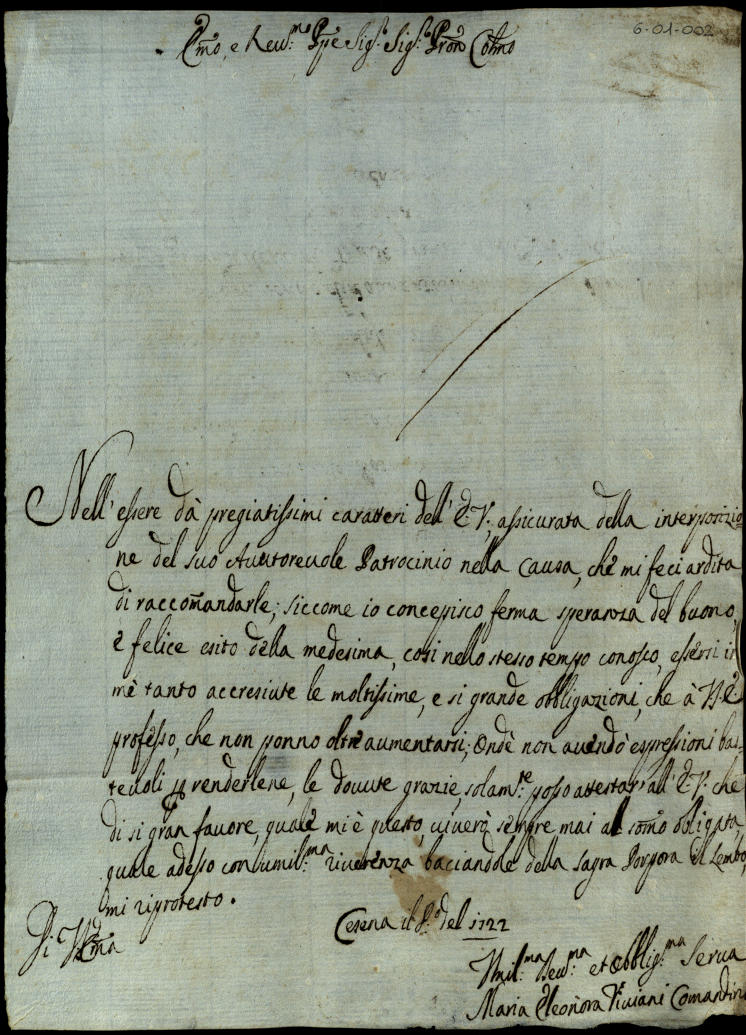 6-01-002
Emo, e Reu.mo Ppe Sig.r Sig.r Pron Colmo
Nell'essere dà pregiatissimi caratteri dell'E.V. assicurata della interposizio
ne del suo Auutoreuole Patrocinio nella causa, che mi feci ardita
di raccomandarle; siccome io concepisco ferma speranza del buono,
e felice esito della medesima, così nello stesso tempo conosco, essersi in
mè tanto accresiute le moltissime, e si grande obbligazioni, che à V.E.
professo, che non ponno oltre aumentarsi; Onde non auendo espressioni bas
teuoli p renderlene, le douute grazie, solam.te posso attestar all'E.V. che
di si gran fauore, quale mi è questo, viuerò sempre mai al somo obligata,
quale adesso con umil.ma riuerenza baciandole della Sagra Porpora il Lembo,
mi riprotesto.
Di V. Ema
Cesena il P.o del 1722
Vmil.ma Deu.ma et Obblig.ma Serua
Maria Eleonora Viuiani Comandini